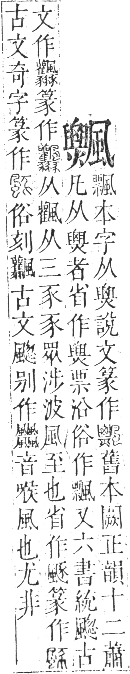 飄本字从㷼說文篆作舊本闕正韻十二蕭
凡从㷼者省作票俗作飄又六書統古
文作篆作从从三豕豕眾涉波風至也省作篆作
古文奇字篆作俗刻古文别作音㗋風也尤非